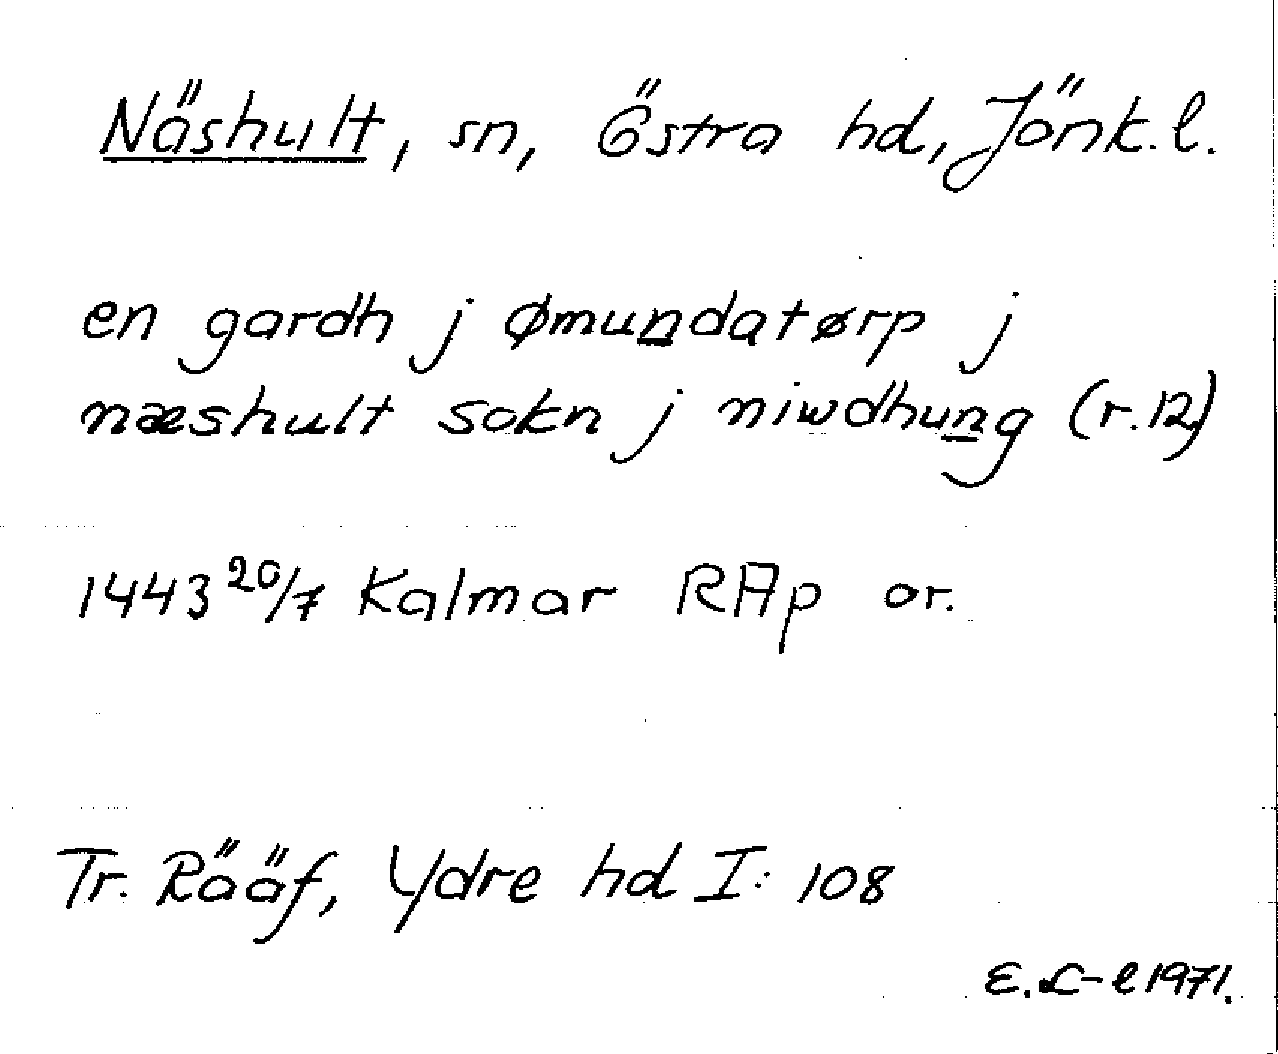 Näshult, sn, Östra hd, Jönk.l.
en gardh j Ømundatørp j
næshult sokn j niwdhung (r.12)
1443 20/7 Kalmar RAp or.
Tr. Rääf, Ydre hd I: 108
E.L-l 1971.